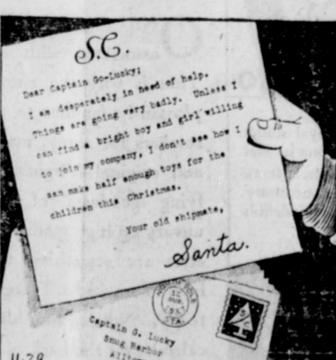 S.C.
Dear Captain Go-Lucky;
I am desperately in need of help.
Things are going very badly. Unless I
can find a bright boy and girl willing
to join my company, I don't see how I
can make half enough toys for the
children this Christmas.
Your old shipmate,
Santa.
NORTH POLE
STA.
Captain G. Lucky
Snug Harbor
11-28